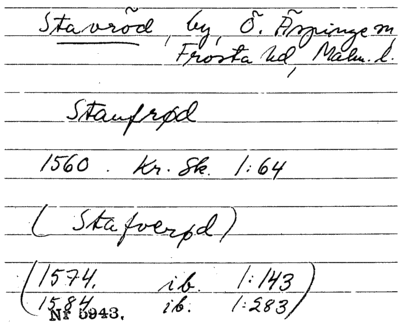 Stavröd, by, Ö. Äspinge sn,
Frosta hd, Malm. l.
Staufrød
1560. Kr. Sk. 1:64
(Stafverød)
(1574. ib. 1:143)
1584. ib. 1:283)
Nr 5943.